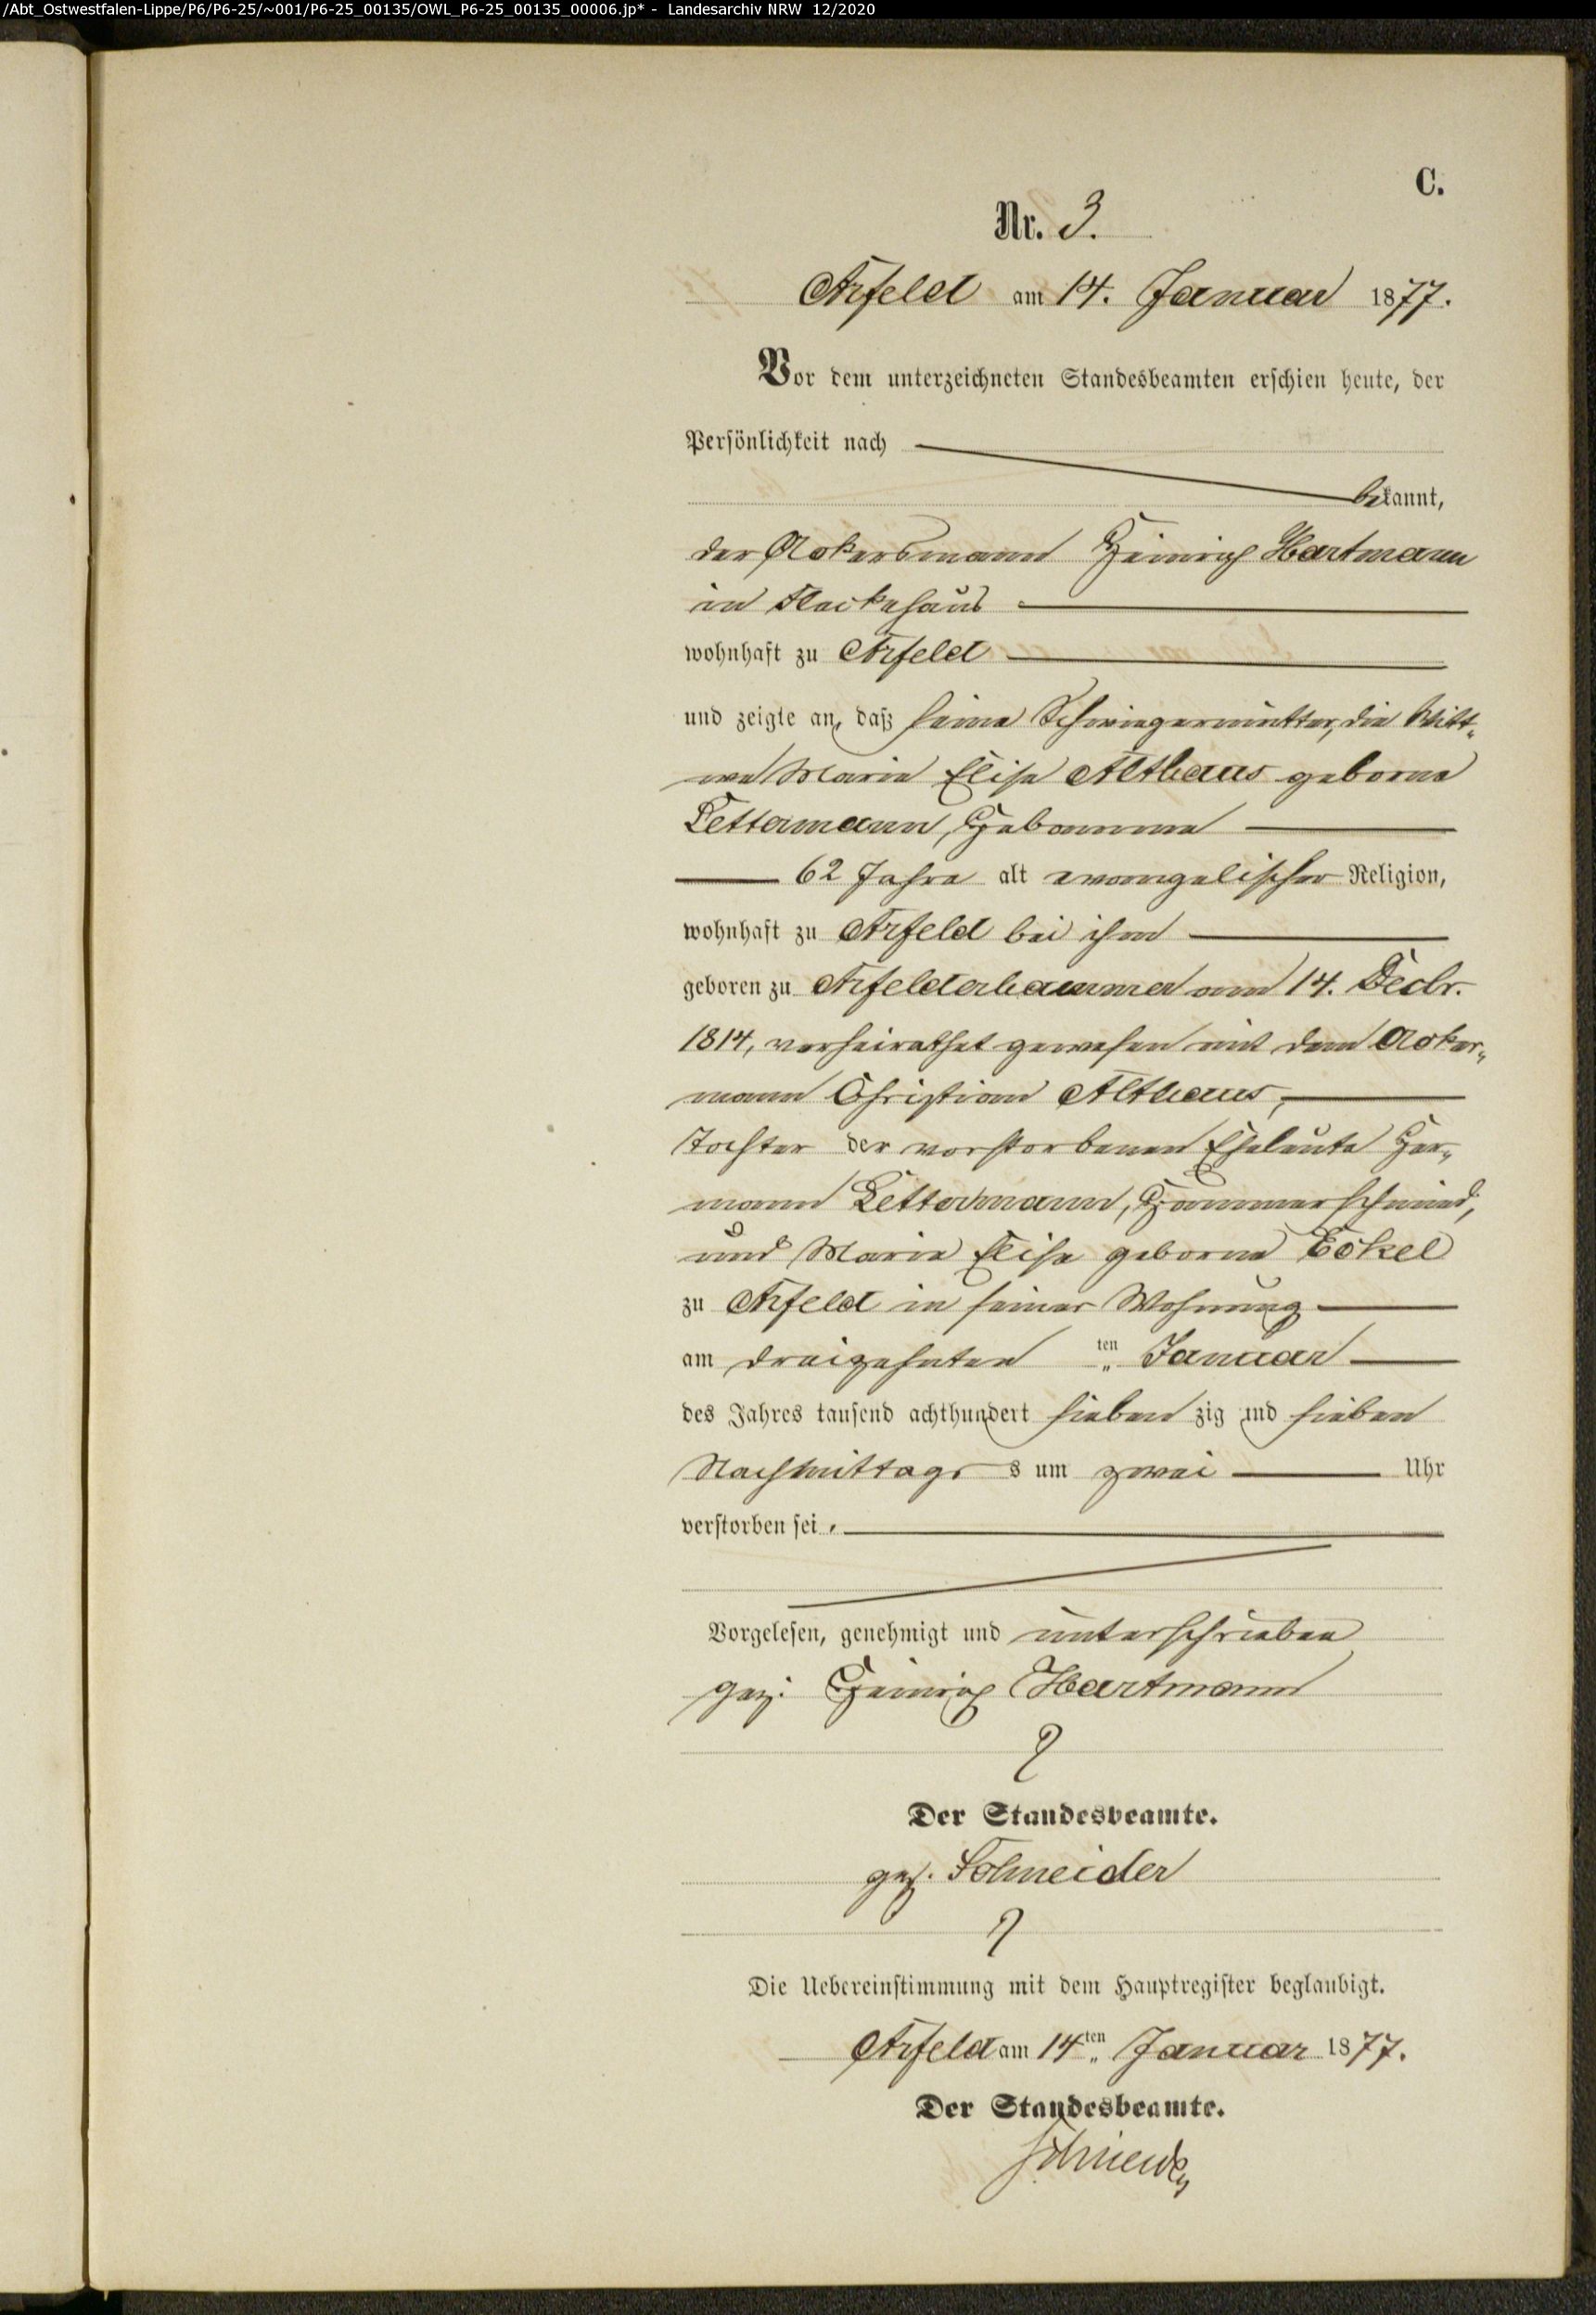 /Abt_Ostwestfalen-Lippe/P6/P6-25/~001/P6-25_00135/OWL_P6-25_00135_00006.jp* - Landesarchiv NRW 12/2020
C.
Nr. 3.
Arfeld am 14. Januar 1877.
Vor dem unterzeichneten Standesbeamten erschien heute, der
Persönlichkeit nach
bekannt,
der Ackersmann Heinrich Hartmann
in
wohnhaft zu Arfeld
und zeigte an, daß seine Schwiegermutter, die Witt-
we Marie Elise Althaus geborne
Lettermann, Hebamme
62 Jahre alt evangelischer Religion,
wohnhaft zu Arfeld bei ihm
geboren zu Arfelderhammer am 14. Decbr.
1814, verheirathet gewesen mit dem Acker-
mann Christian Althaus,
Tochter der verstorbenen Eheleute Her-
mann Lettermann, Hammerschmied,
und Marie Elise geborne Eckel
zu Arfeld in seiner Wohnung
am dreizehnten ten Januar
des Jahres tausend achthundert sieben zig und sieben
Nachmittags s um zwei Uhr
verstorben sei.
Vorgelesen, genehmigt und unterschrieben
gez. Heinrich Hartmann
Der Standesbeamte.
gez. Schneider
Die Uebereinstimmung mit dem Hauptregister beglaubigt.
Arfeld am 14ten Januar 1877.
Der Standesbeamte.
Schneider